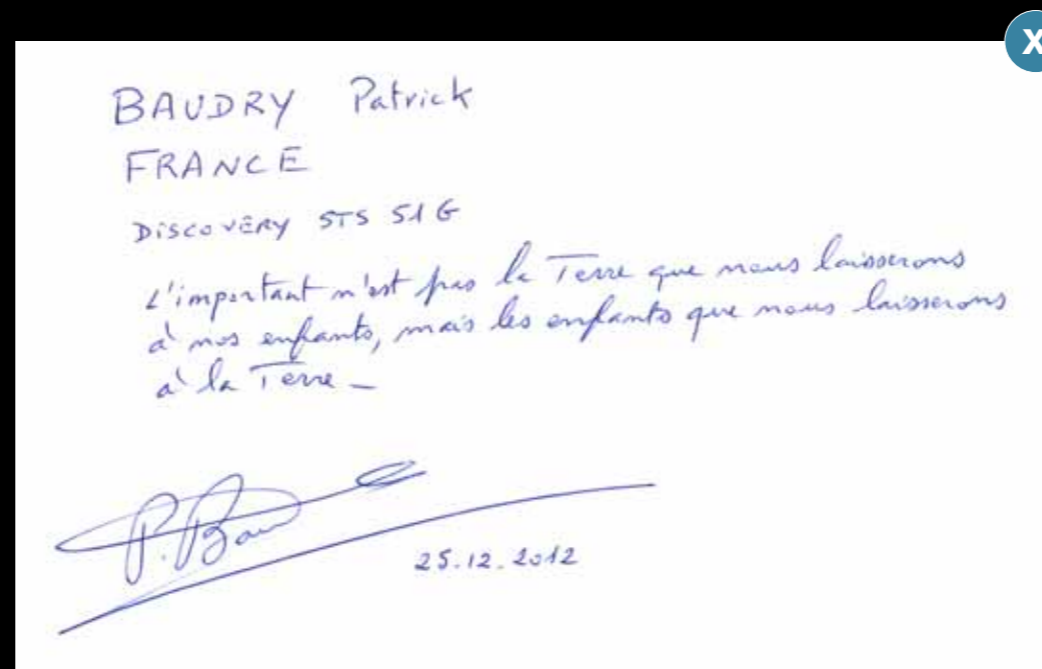 X
BAUDRY Patrick
FRANCE
DISCOVERY STS 51 G
L'important n'est pas la Terre que nous laisserons
à nos enfants, mais les enfants que nous laisserons
à la Terre _
P. Bau
25.12.2012